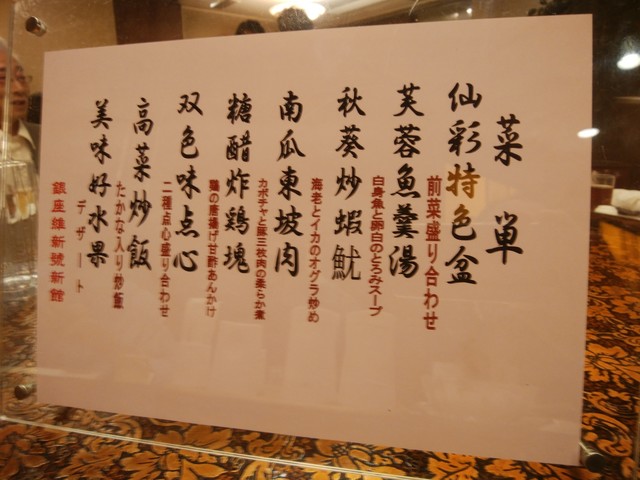 菜単
仙彩特色盆
前菜盛り合わせ
芙蓉魚羹湯
白身魚と卵白のとろみスープ
秋葵炒蝦魷
海老とイカのオクラ炒め
南瓜東坡肉
カボチャと豚三枚肉の柔らか煮
糖醋炸鶏塊
鶏の唐揚げ甘酢あんかけ
双色味点心
二種点心盛り合わせ
高菜炒飯
たかな入り炒飯
美味好水果
デザート
銀座維新號新館